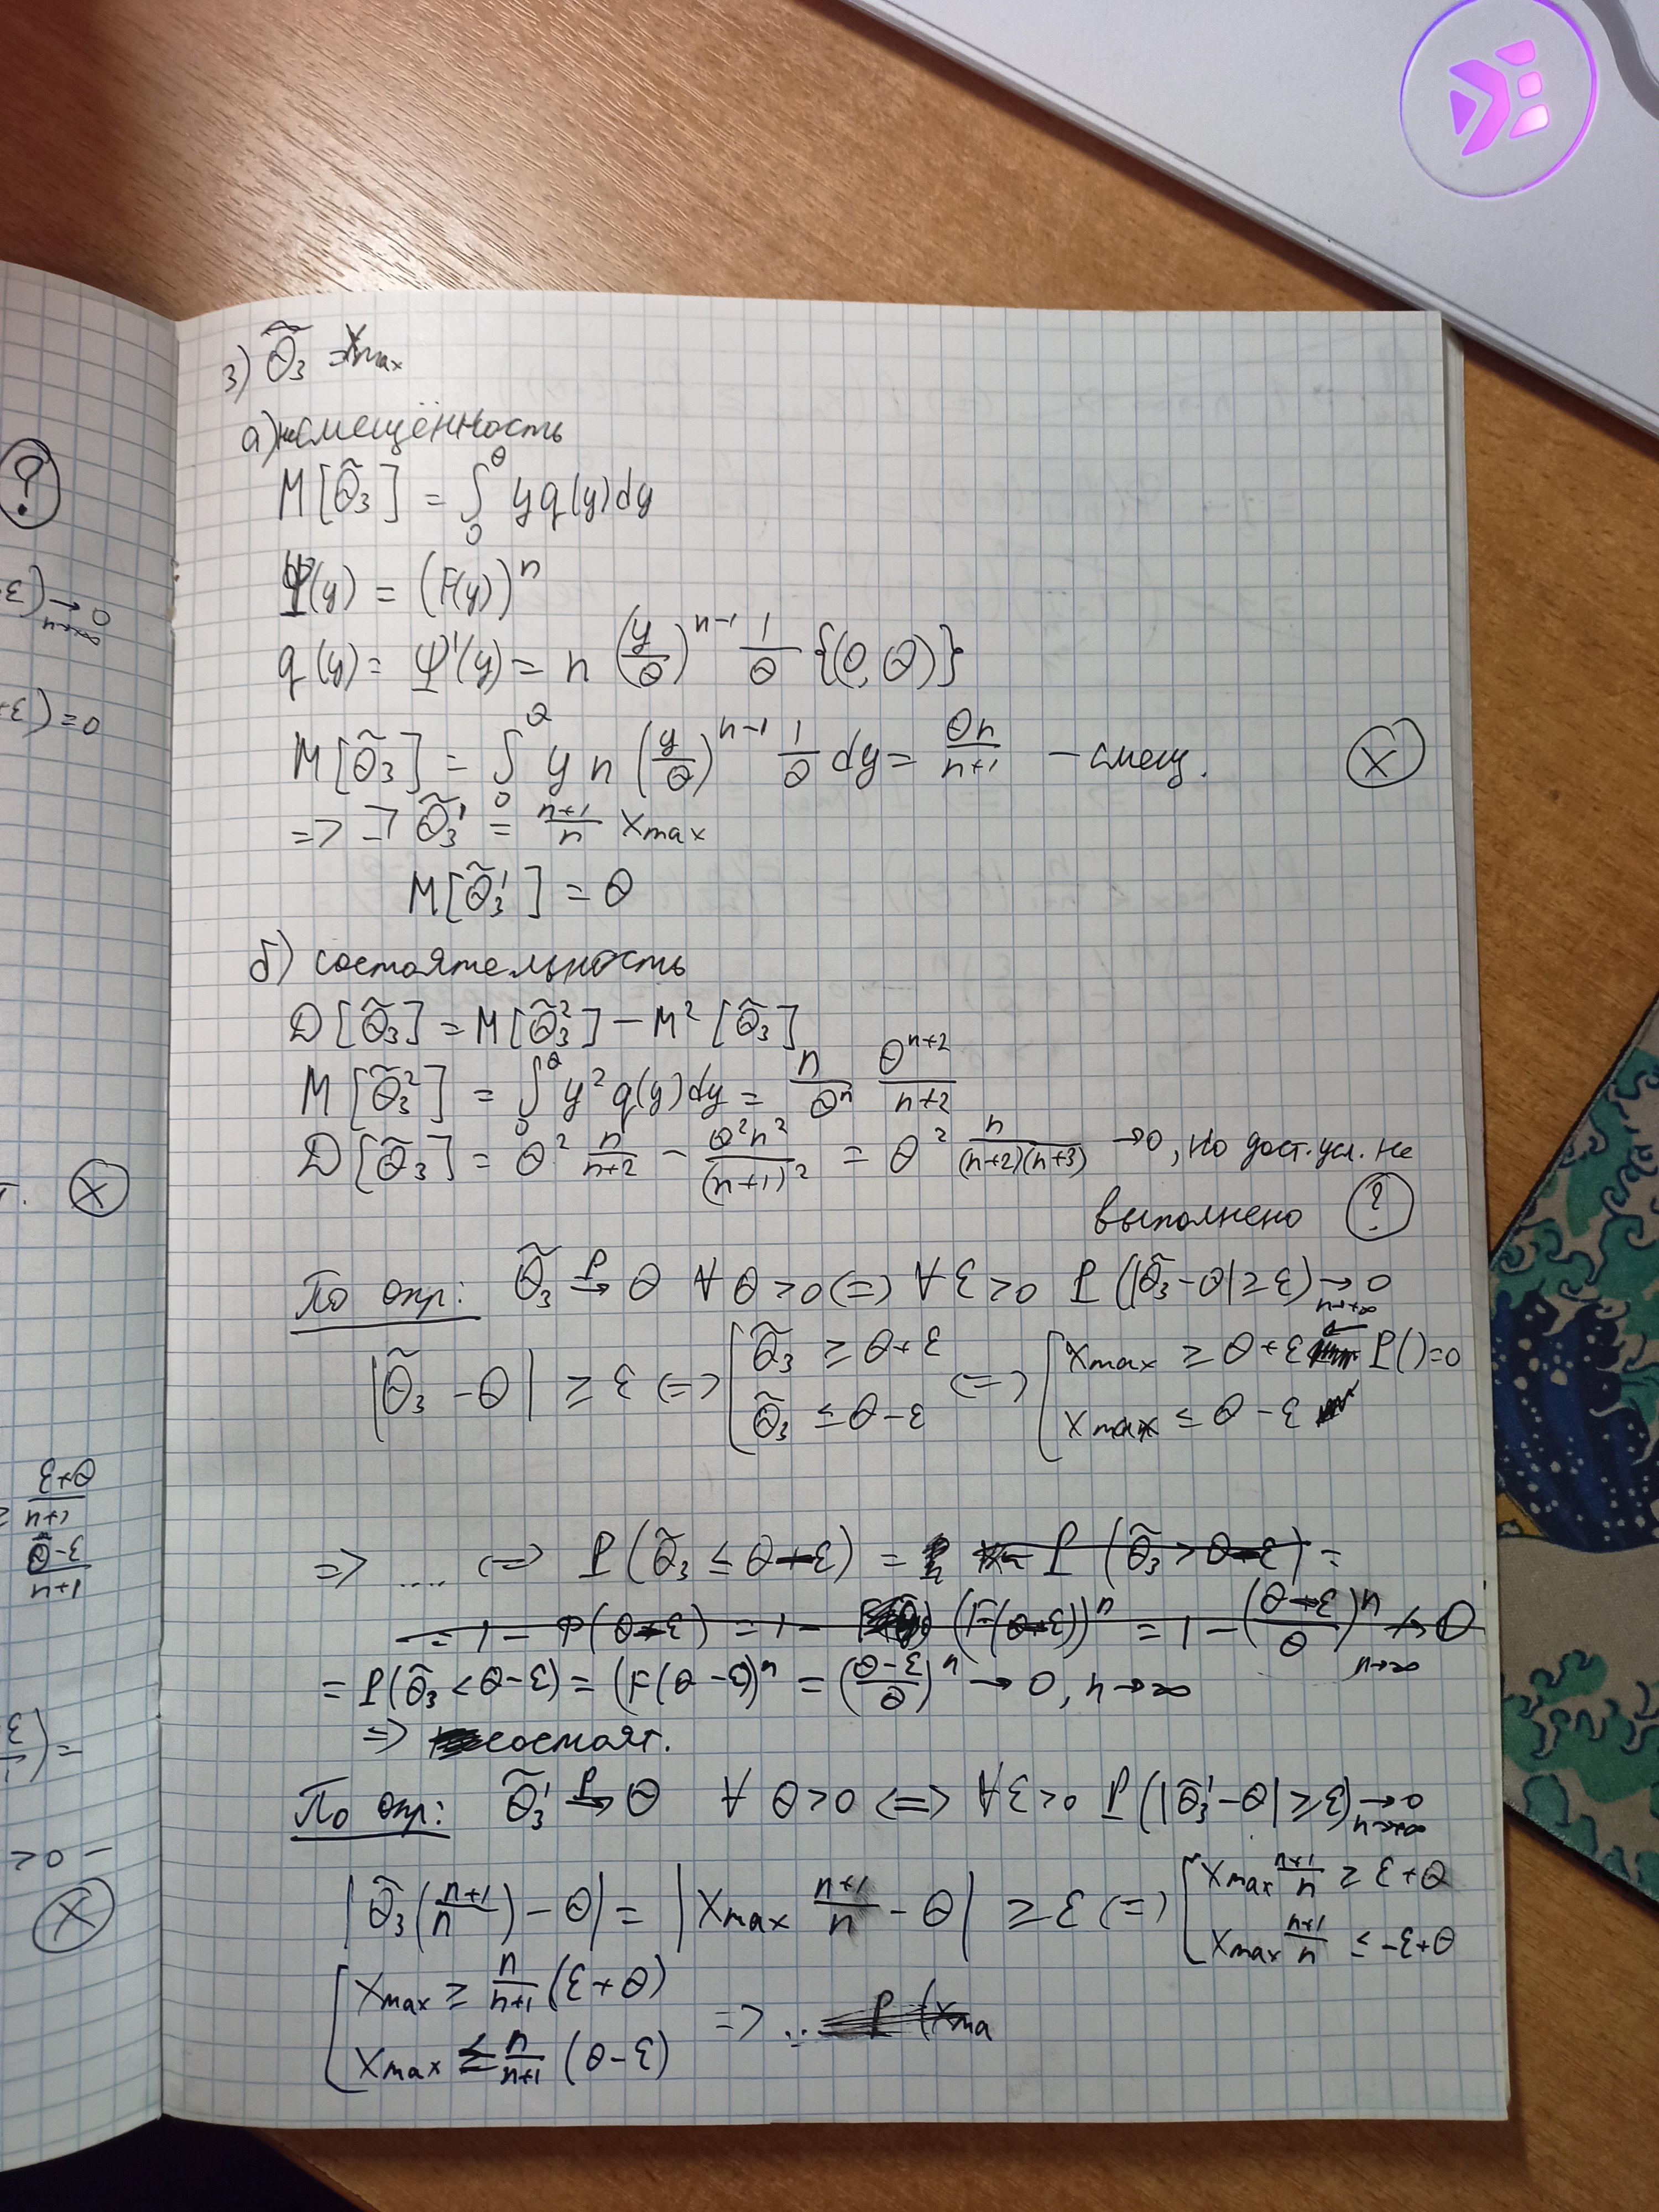 3) θ̃₃ = xmax
а) несмещённость
M[θ̃₃] = ∫₀^θ y q(y)dy
Ψ(y) = (F(y))ⁿ
q(y) = Ψ'(y) = n (y/θ)ⁿ⁻¹ 1/θ {(0,θ)}
M[θ̃₃] = ∫₀^θ y n (y/θ)ⁿ⁻¹ 1/θ dy = θn/(n+1) – смещ. X
=> ∃ θ̃₃' = (n+1)/n xmax
M[θ̃₃'] = θ
б) состоятельность
D[θ̃₃] = M[θ̃₃²] – M²[θ̃₃]
M[θ̃₃²] = ∫₀^θ y² q(y)dy = n/θⁿ θⁿ⁺²/(n+2)
D[θ̃₃] = θ² n/(n+2) – θ²n²/(n+1)² = θ² n/((n+2)(n+3)) →0, но дост. усл. не
выполнено ?
По опр: θ̃₃ →ᴾ θ ∀ θ>0 <=> ∀ ε>0 P(|θ̃₃–θ| ≥ ε) → 0 n→+∞
|θ̃₃ – θ| ≥ ε <=> [ θ̃₃ ≥ θ+ε ; θ̃₃ ≤ θ–ε <=> [ xmax ≥ θ+ε ← P()=0 ; xmax ≤ θ–ε
=> .... <=> P(θ̃₃ ≤ θ–ε) = P(θ̃₃ > θ–ε) =
= 1 – P(θ–ε) = 1 – (F(θ–ε))ⁿ = 1 – ((θ–ε)/θ)ⁿ ↛ 0 n→∞
= P(θ̃₃ < θ–ε) = (F(θ–ε))ⁿ = ((θ–ε)/θ)ⁿ → 0, n→∞
=> состоят.
По опр: θ̃₃' →ᴾ θ ∀ θ>0 <=> ∀ε>0 P(|θ̃₃'–θ| ≥ ε) → 0 n→+∞
|θ̃₃((n+1)/n) – θ| = |xmax (n+1)/n – θ| ≥ ε <=> [ xmax (n+1)/n ≥ ε+θ ; xmax (n+1)/n ≤ –ε+θ
[ xmax ≥ n/(n+1) (ε+θ) ; xmax ≤ n/(n+1) (θ–ε) => ... P(xma